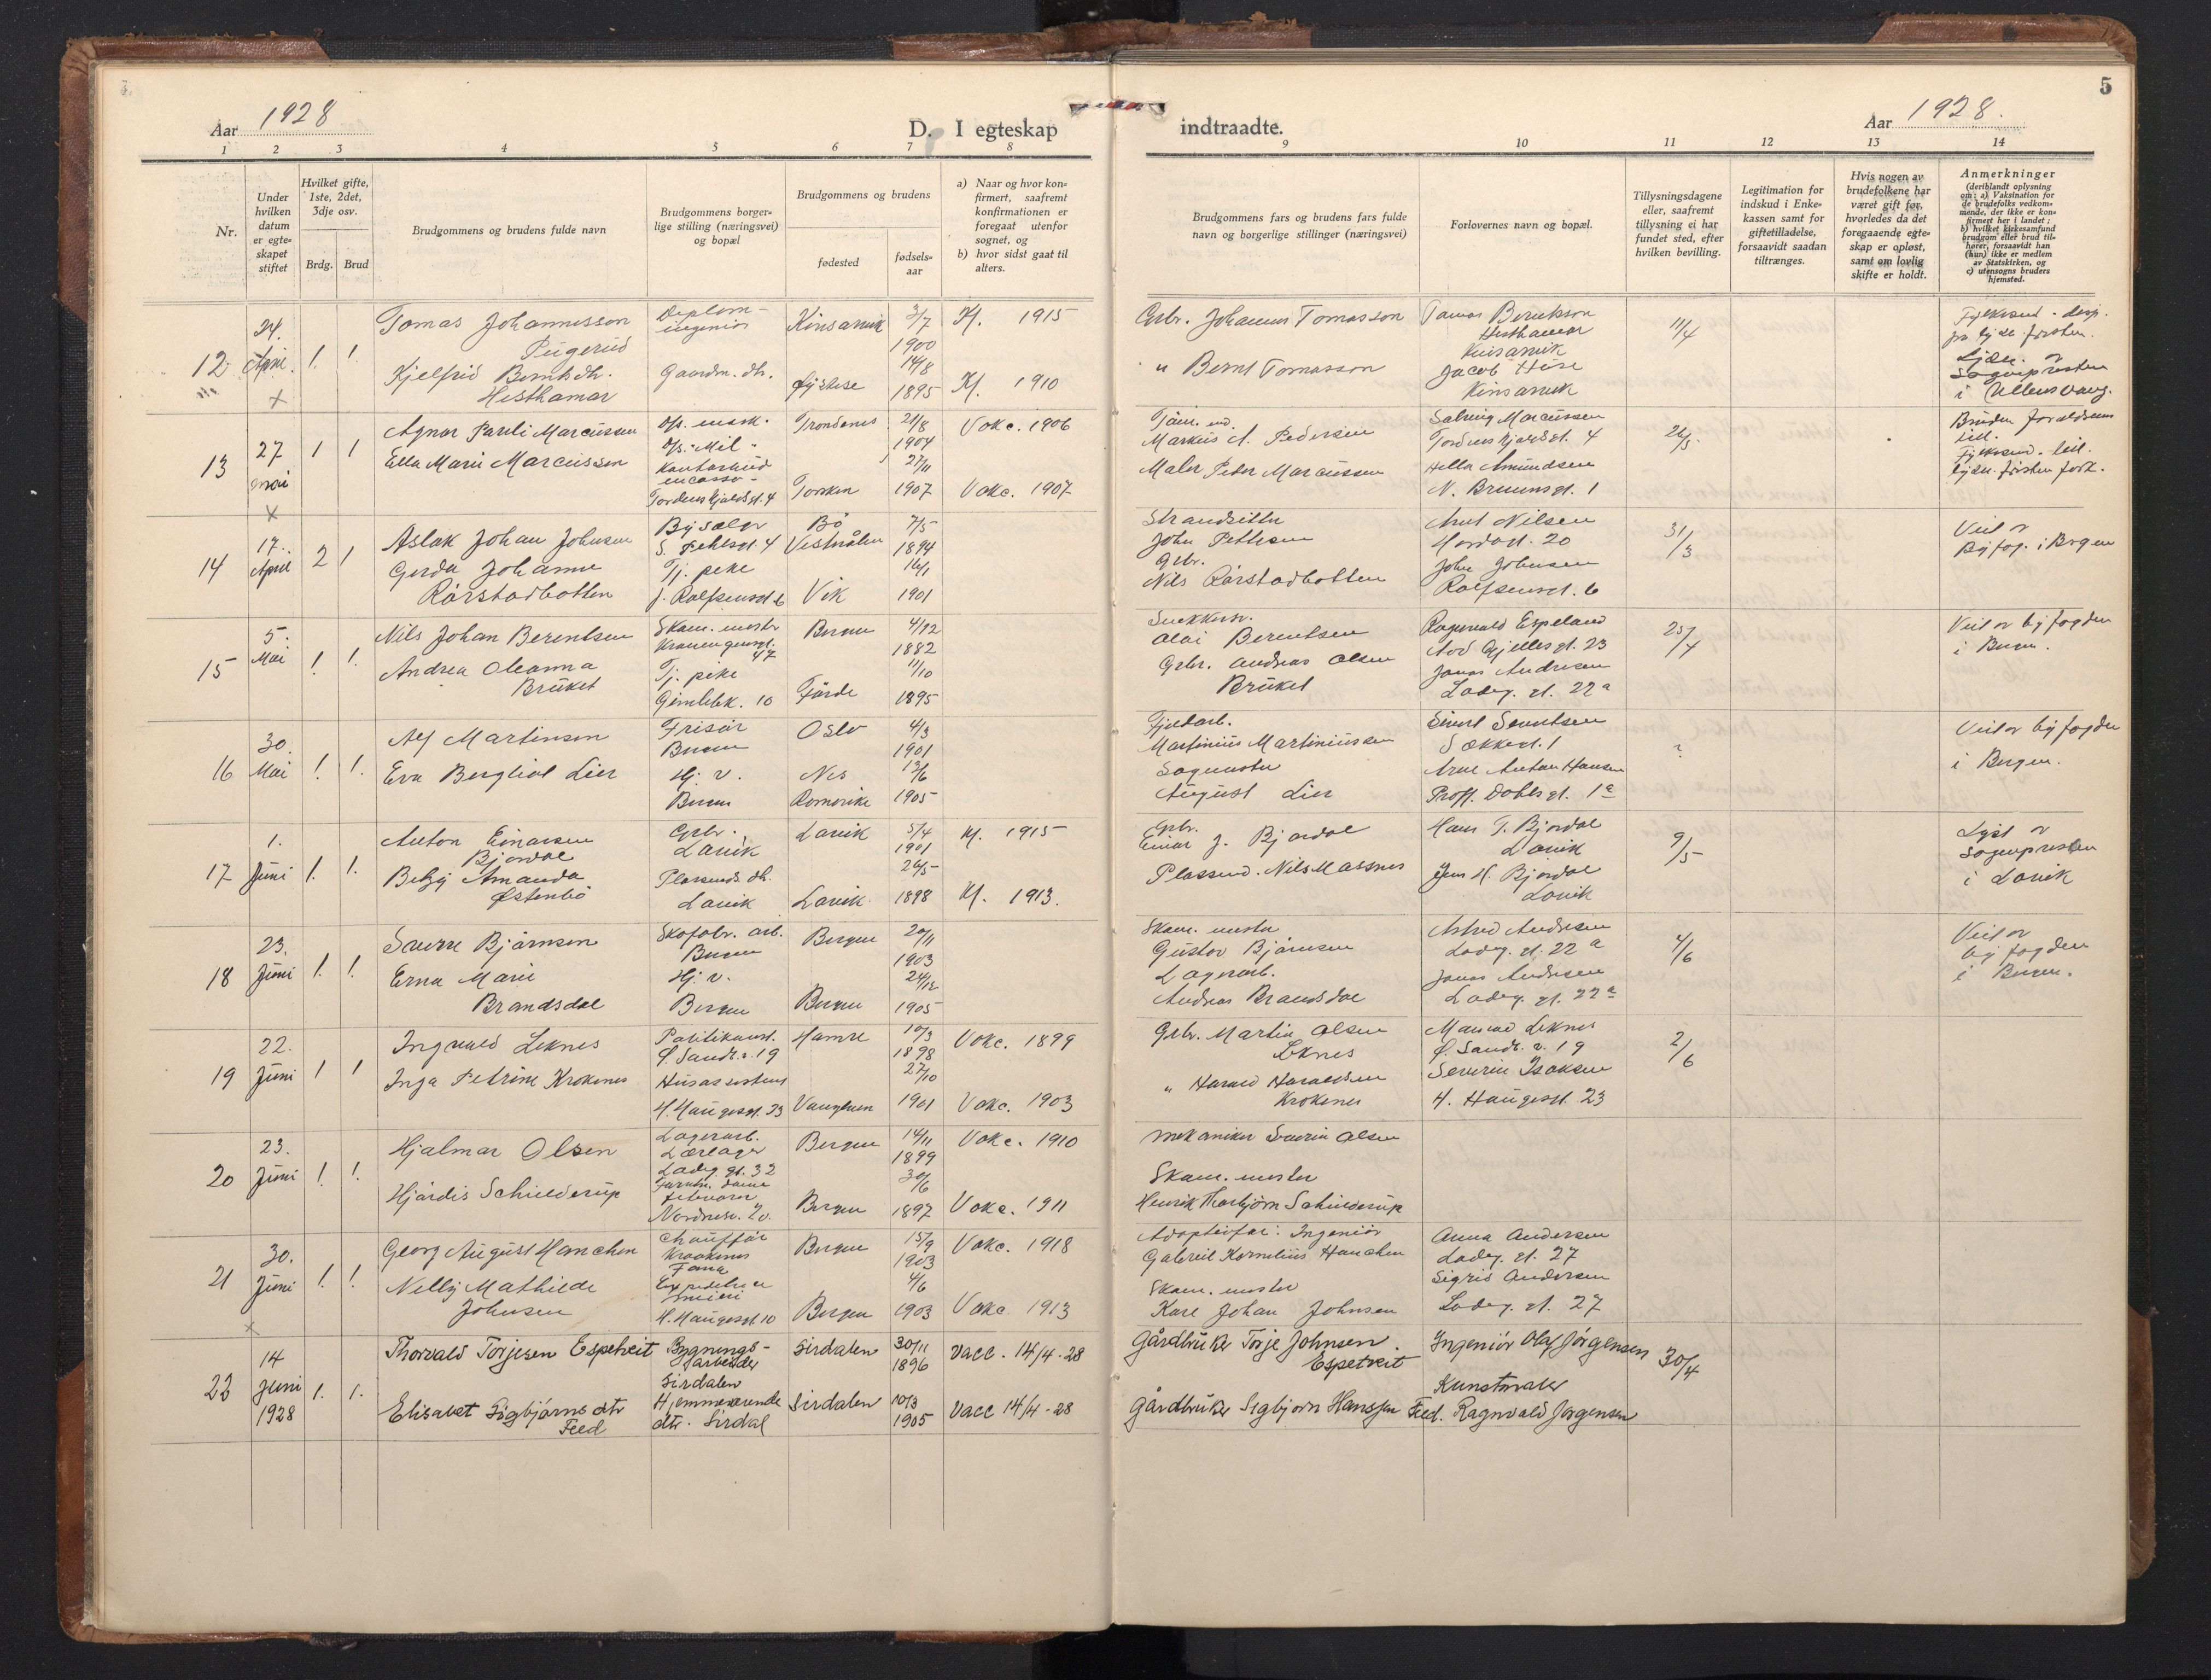 5
Aar 1928
D. I egteskap
indtraadte.
Aar 1928.
1 2 3 4 5 6 7 8 9 10 11 12 13 14
Nr.
Under
hvilken
datum
er egte-
skapet
stiftet
Hvilket gifte,
1ste, 2det,
3dje osv.
Brdg. Brud
Brudgommens og brudens fulde navn
Brudgommens borger-
lige stilling (næringsvei)
og bopæl
Brudgommens og brudens
fødested
fødsels-
aar
a) Naar og hvor kon-
firmert, saafremt
konfirmationen er
foregaat utenfor
sognet, og
b) hvor sidst gaat til
alters.
Brudgommens fars og brudens fars fulde
navn og borgerlige stillinger (næringsvei)
Forlovernes navn og bopæl.
Tillysningsdagene
eller, saafremt
tillysning ei har
fundet sted, efter
hvilken bevilling.
Legitimation for
indskud i Enke-
kassen samt for
giftetilladelse,
forsaavidt saadan
tiltrænges.
Hvis nogen av
brudefolkene har
været gift før,
hvorledes da det
foregaaende egte-
skap er opløst,
samt om lovlig
skifte er holdt.
Anmerkninger
(deriblandt oplysning
om: a) Vaksination for
de brudefolks vedkom-
mende, der ikke er kon-
firmert her i landet;
b) hvilket kirkesamfund
brudgom eller brud til-
hører, forsaavidt han
(hun) ikke er medlem
av Statskirken, og
c) utensogns bruders
hjemsted.
12 24. April 1. 1.
Tomas Johannesson
Diplom-
ingeniør
Kinsarvik 3/7 1900 Kf. 1915
Kjelfrid Berntsdtr.
Hesthamar
Gaardm. dtr. 14/8 1895 Kf. 1910
Grbr. Johannes Tomasson
" Bernt Tomasson
Hesthamar
Kinsarvik
Jacob
Kinsarvik
11/4
Sognepresten
i Ullensvang.
13 27 mai 1 1
Agnar Pauli Marcussen
Trondenes 21/8 1904 Vakc. 1906
Ella Marie Marcussen
Tordenskjoldsgt. 4 Torsken 27/11 1907 Vakc. 1907
Markus A. Pedersen
Maler Peder Marcussen
Solveig Marcussen
Tordenskjoldsgt. 4
Amundsen
N. Bruunsgt. 1
26/5
14 17. April 2 1
Aslak Johan Johnsen
Byselger Bö
Vesterålen 7/5 1894
Gerda Johanne
Rörstadbotten
Tj. pike
J. Rolfsensgt 6 Vik 16/1 1901
Strandsitter
John Pettersen
Grbr.
Nils Rörstadbotten
Arnt Nilsen
20
John Johnsen
Rolfsensgt. 6
31/3
Viet av
Byfog. i Bergen
15 5. Mai 1. 1.
Nils Johan Berentsen
Skom. mester
47 Bergen 4/12 1882
Andrea Oleanna
Brüket
Tj. pike
Gimlebk. 10 Förde 11/10 1895
Olai Berentsen
Grbr. Andreas Olsen
Brüket
Ragnvald Espeland
23
Jonas Andersen
Ladeg. gt. 22a
25/4
Viet av byfogden
i Bergen.
16 30. Mai 1. 1.
Alf Martinsen
Frisör
Bergen Oslo 4/3 1901
Eva Bergliot Lier
Hj. v.
Bergen Nes
Romerike 13/6 1905
Martinius Martiniussen
August Lier
Sivert Sivertsen
Arne Anton Hansen
Proff. Dahls gt. 1a
?
Viet av byfogden
i Bergen.
17 1. Juni 1. 1.
Anton Einarsen
Bjordal
Grbr.
Lavik Lavik 5/4 1901 Kf. 1915
Betzy Amanda
Østenbö
Plassmds. dtr.
Lavik Lavik 26/5 1898 Kf. 1913.
Grbr.
Einar J. Bjordal
Plassmd. Nils Massnes
Hans T. Bjordal
Lavik
Jens H. Bjordal
Lavik
9/5
Lyst av
Sognepresten
i Lavik
18 23. Juni 1. 1.
Sverre Bjørnsen
Skofabr. arb.
Bergen Bergen 20/11 1903
Erna Marie
Brandsdal
Hj. v.
Bergen Bergen 24/12 1905
Skom. mester
Gustav Bjørnsen
Lagerarb.
Andreas Brandsdal
Astrid Andersen
Ladeg. gt. 22a
Jonas Andersen
Ladeg. gt. 22a
4/6
Viet av
byfogden
i Bergen.
19 22. Juni 1 1
Ingvald Leknes
Politikonst.
Ø. Sandv. v. 19 Hamre 10/3 1898 Vakc. 1899
Inga Petrine Krokenes
Husassistent
H. Haugesgt. 23 27/10 1901 Vakc. 1903
Grbr. Martin Olsen
Leknes
" Harald Haraldsen
Krokenes
Leknes
Ø. Sandv. v. 19
Severin Isaksen
H. Haugesgt. 23
2/6
20 23. Juni 1. 1.
Hjalmar Olsen
Lagerarb.
Lærlager
Ladeg. gt. 32 Bergen 14/11 1899 Vakc. 1910
Hjördis Schielderup
Bergen 30/6 1897 Vakc. 1911
Mekaniker Severin Olsen
Skom. mester
Henrik Thorbjörn Schielderup
21 30. Juni 1. 1.
Georg August Hanchen
Chauffør
Kraakenes
Fana Bergen 15/9 1903 Vakc. 1918
Nelly Mathilde
Johnsen
H. Haugesgt 10 Bergen 4/6 1903 Vakc 1913
Adoptivfar: Ingeniör
Gabriel Kornelius Hanchen
Skom. mester
Karl Johan Johnsen
Anna Andersen
Ladeg. gt. 27
Sigrid Andersen
Ladeg. gt. 27
22 14 Juni 1928 1. 1.
Thorvald Torjesen Espetveit
Bygnings-
arbeider
Sirdalen Sirdalen 30/11 1896 Vacc. 14/4-28
Elisabet Sigbjørns dtr
Feed
Hjemmeværende
dtr. Sirdal Sirdalen 10/3 1905 Vacc 14/4-28
Gårdbruker Torje Johnsen
Espetveit
Gårdbruker Sigbjørn Hanssen Feed.
Ingeniør Olaf Jørgensen
Kunstmaler
Ragnvald Jørgensen
30/4